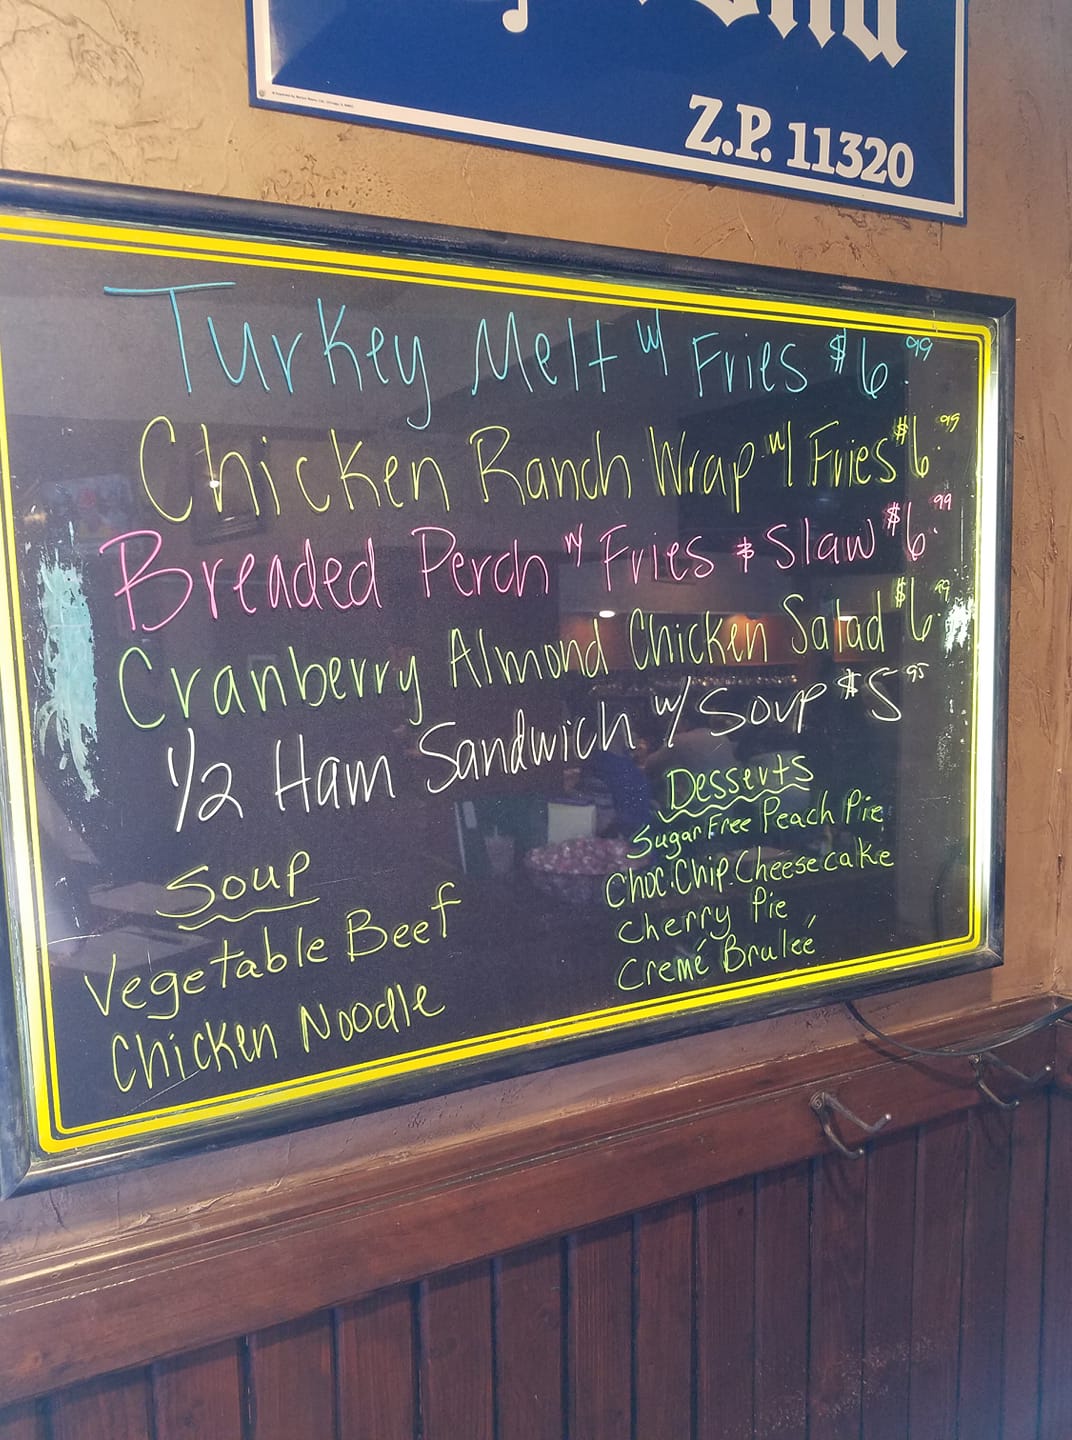 Z.P. 11320
Turkey Melt w/ Fries $6.99
Chicken Ranch Wrap w/ Fries $6.99
Breaded Perch w/ Fries & Slaw $6.99
Cranberry Almond Chicken Salad $6.99
1/2 Ham Sandwich w/ Soup $5.95
Desserts
Sugar Free Peach Pie
Choc. Chip. Cheesecake
Cherry Pie
Cremé Bruleé
Soup
Vegetable Beef
Chicken Noodle